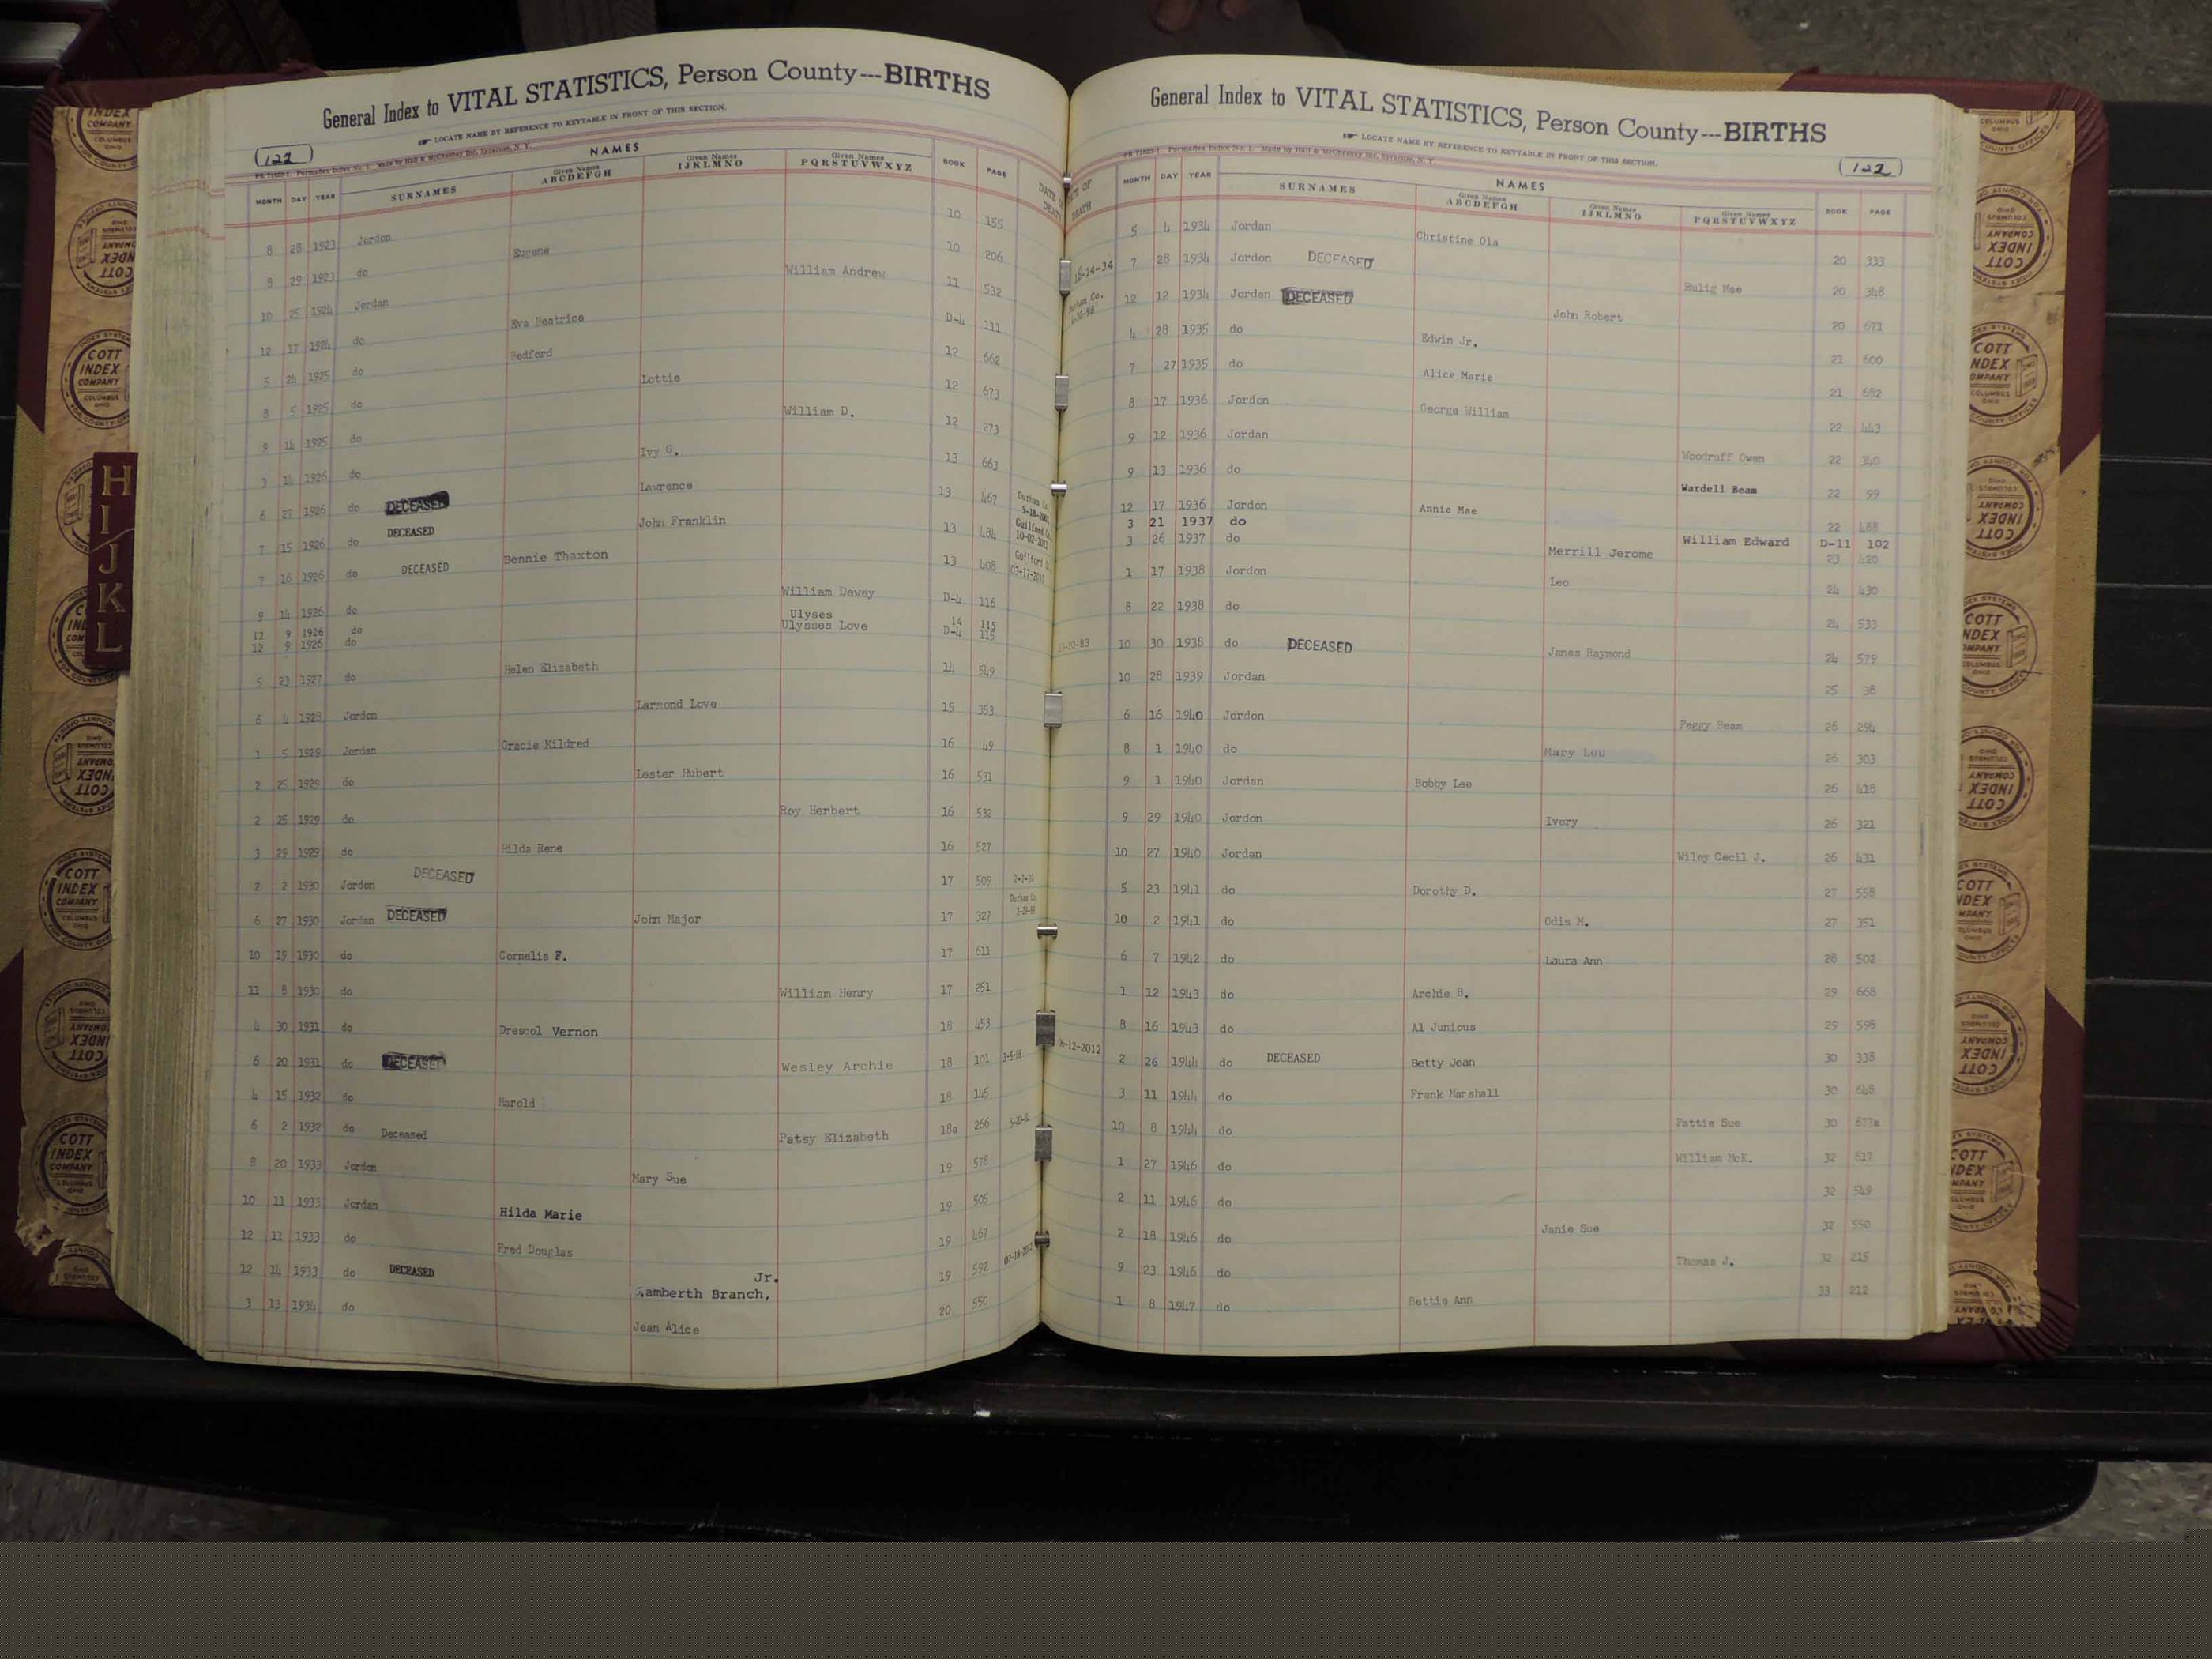 General Index to VITAL STATISTICS, Person County---BIRTHS
LOCATE NAME BY REFERENCE TO KEYTABLE IN FRONT OF THIS SECTION.
122
NAMES
MONTH DAY YEAR SURNAMES Given Names ABCDEFGH Given Names IJKLMNO Given Names PQRSTUVWXYZ BOOK PAGE DATE OF DEATH
8 28 1923 Jordon Eugene 10 155
8 29 1923 do William Andrew 10 206
10 25 1924 Jordan Eva Beatrice 11 532
12 17 1924 do Bedford D-4 111
5 24 1925 do Lottie 12 662
8 5 1925 do William D. 12 673
9 14 1925 do Ivy G. 12 273
3 14 1926 do Laurence 13 663
6 27 1926 do DECEASED John Franklin 13 467 Durham Co.
7 15 1926 do DECEASED Bennie Thaxton 13 484 Guilford Co. 10-02-2012
7 16 1926 do DECEASED 13 408 Guilford 03-17-2010
9 14 1926 do William Dewey D-4 116
12 9 1926 do Ulyses 14 115
12 9 1926 do Ulysses Love D-4 115
5 23 1927 do Helen Elizabeth 14 549
6 4 1928 Jordon Larmond Love 15 353
1 5 1929 Jordan Gracie Mildred 16 49
2 25 1929 do Lester Hubert 16 531
2 25 1929 do Roy Herbert 16 532
3 29 1929 do Hilda Rene 16 527
2 2 1930 Jordon DECEASED 17 509 2-2-30
6 27 1930 Jordan DECEASED John Major 17 327 Durham Co.
10 19 1930 do Cornelia F. 17 611
11 8 1930 do William Henry 17 251
4 30 1931 do Drescol Vernon 18 453
6 20 1931 do DECEASED Wesley Archie 18 101
4 15 1932 do Harold 18 145
6 2 1932 do Deceased Patsy Elizabeth 18a 266
8 20 1933 Jordon Mary Sue 19 578
10 11 1933 Jordan Hilda Marie 19 505
12 11 1933 do Fred Douglas 19 467
12 14 1933 do DECEASED Lamberth Branch, Jr. 19 592
3 13 1934 do Jean Alice 20 550
H I J K L
General Index to VITAL STATISTICS, Person County---BIRTHS
LOCATE NAME BY REFERENCE TO KEYTABLE IN FRONT OF THIS SECTION.
122
NAMES
DATE OF DEATH MONTH DAY YEAR SURNAMES Given Names ABCDEFGH Given Names IJKLMNO Given Names PQRSTUVWXYZ BOOK PAGE
5 4 1934 Jordan Christine Ola 20 333
7 28 1934 Jordon DECEASED Rulig Mae 20 348
12 12 1934 Jordan DECEASED John Robert 20 671
4 28 1935 do Edwin Jr. 21 600
7 27 1935 do Alice Marie 21 682
8 17 1936 Jordon George William 22 443
9 12 1936 Jordan Woodruff Owen 22 340
9 13 1936 do Wardell Beam 22 99
12 17 1936 Jordon Annie Mae 22 488
3 21 1937 do William Edward D-11 102
3 26 1937 do Merrill Jerome 23 420
1 17 1938 Jordon Leo 24 430
8 22 1938 do 24 533
10 30 1938 do DECEASED James Raymond 24 579
10 28 1939 Jordan 25 38
6 16 1940 Jordon Peggy Beam 26 294
8 1 1940 do Mary Lou 26 303
9 1 1940 Jordan Bobby Lee 26 418
9 29 1940 Jordon Ivory 26 321
10 27 1940 Jordan Wiley Cecil J. 26 431
5 23 1941 do Dorothy D. 27 558
10 2 1941 do Odis M. 27 351
6 7 1942 do Laura Ann 28 502
1 12 1943 do Archie B. 29 668
8 16 1943 do Al Junious 29 598
06-12-2012 2 26 1944 do DECEASED Betty Jean 30 338
3 11 1944 do Frank Marshall 30 648
10 8 1944 do Pattie Sue 30 677a
1 27 1946 do William McK. 32 617
2 11 1946 do 32 549
2 18 1946 do Janie Sue 32 550
9 23 1946 do Thomas J. 32 215
1 8 1947 do Bettie Ann 33 212
COTT INDEX COMPANY COLUMBUS OHIO